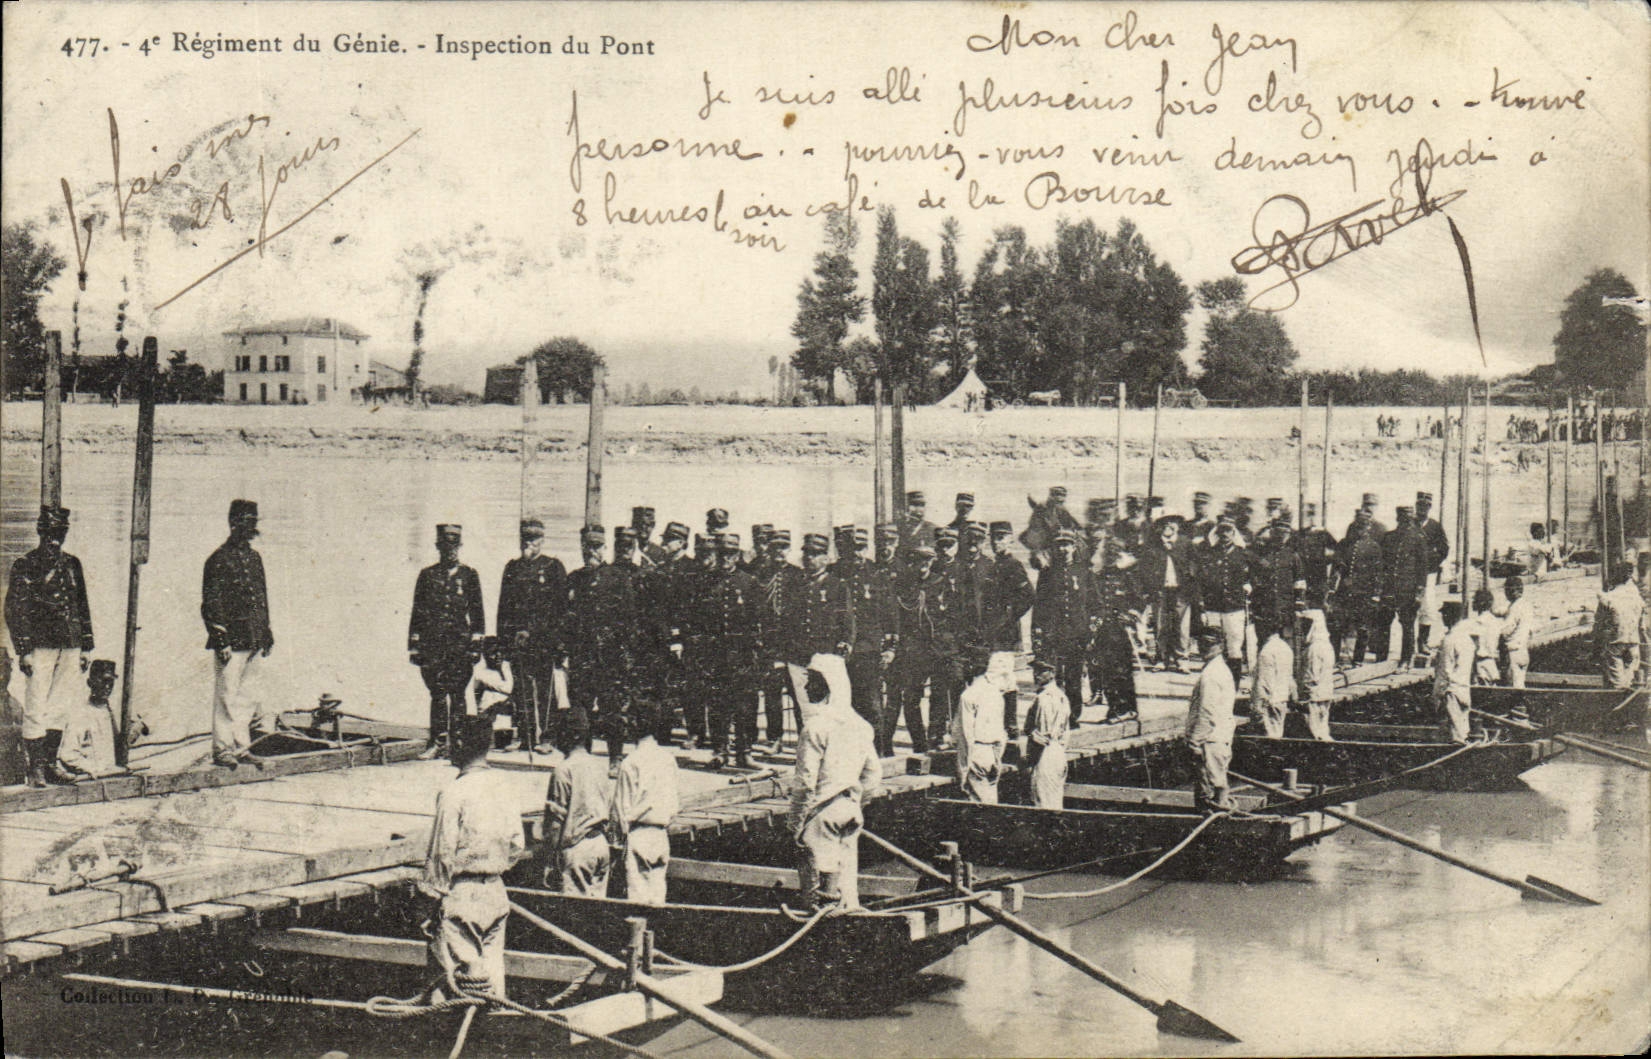 477. - 4e Régiment du Génie. - Inspection du Pont
Mon cher Jean
Je suis allé plusieurs fois chez vous. - trouvé
personne. - pourriez-vous venir demain jeudi à
8 heures au café de la Bourse
le soir
Je fais mes
28 jours
Collection L. P., Grenoble